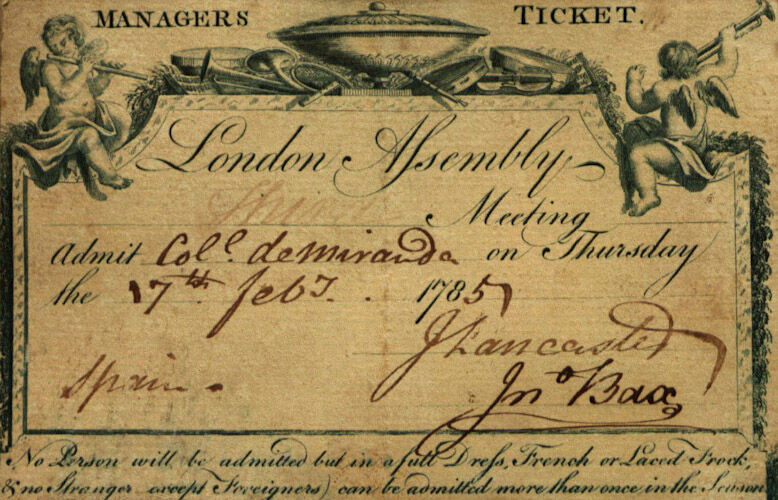 MANAGERS TICKET.
London Assembly
Meeting
Admit Col.l de Miranda on Thursday
the 17th feby. 1785
J Lancaster
Spain.
Jno Bax
No Person will be admitted but in a full Dress, French or Laced Frock,
& no Stranger except Foreigners) can be admitted more than once in the Season